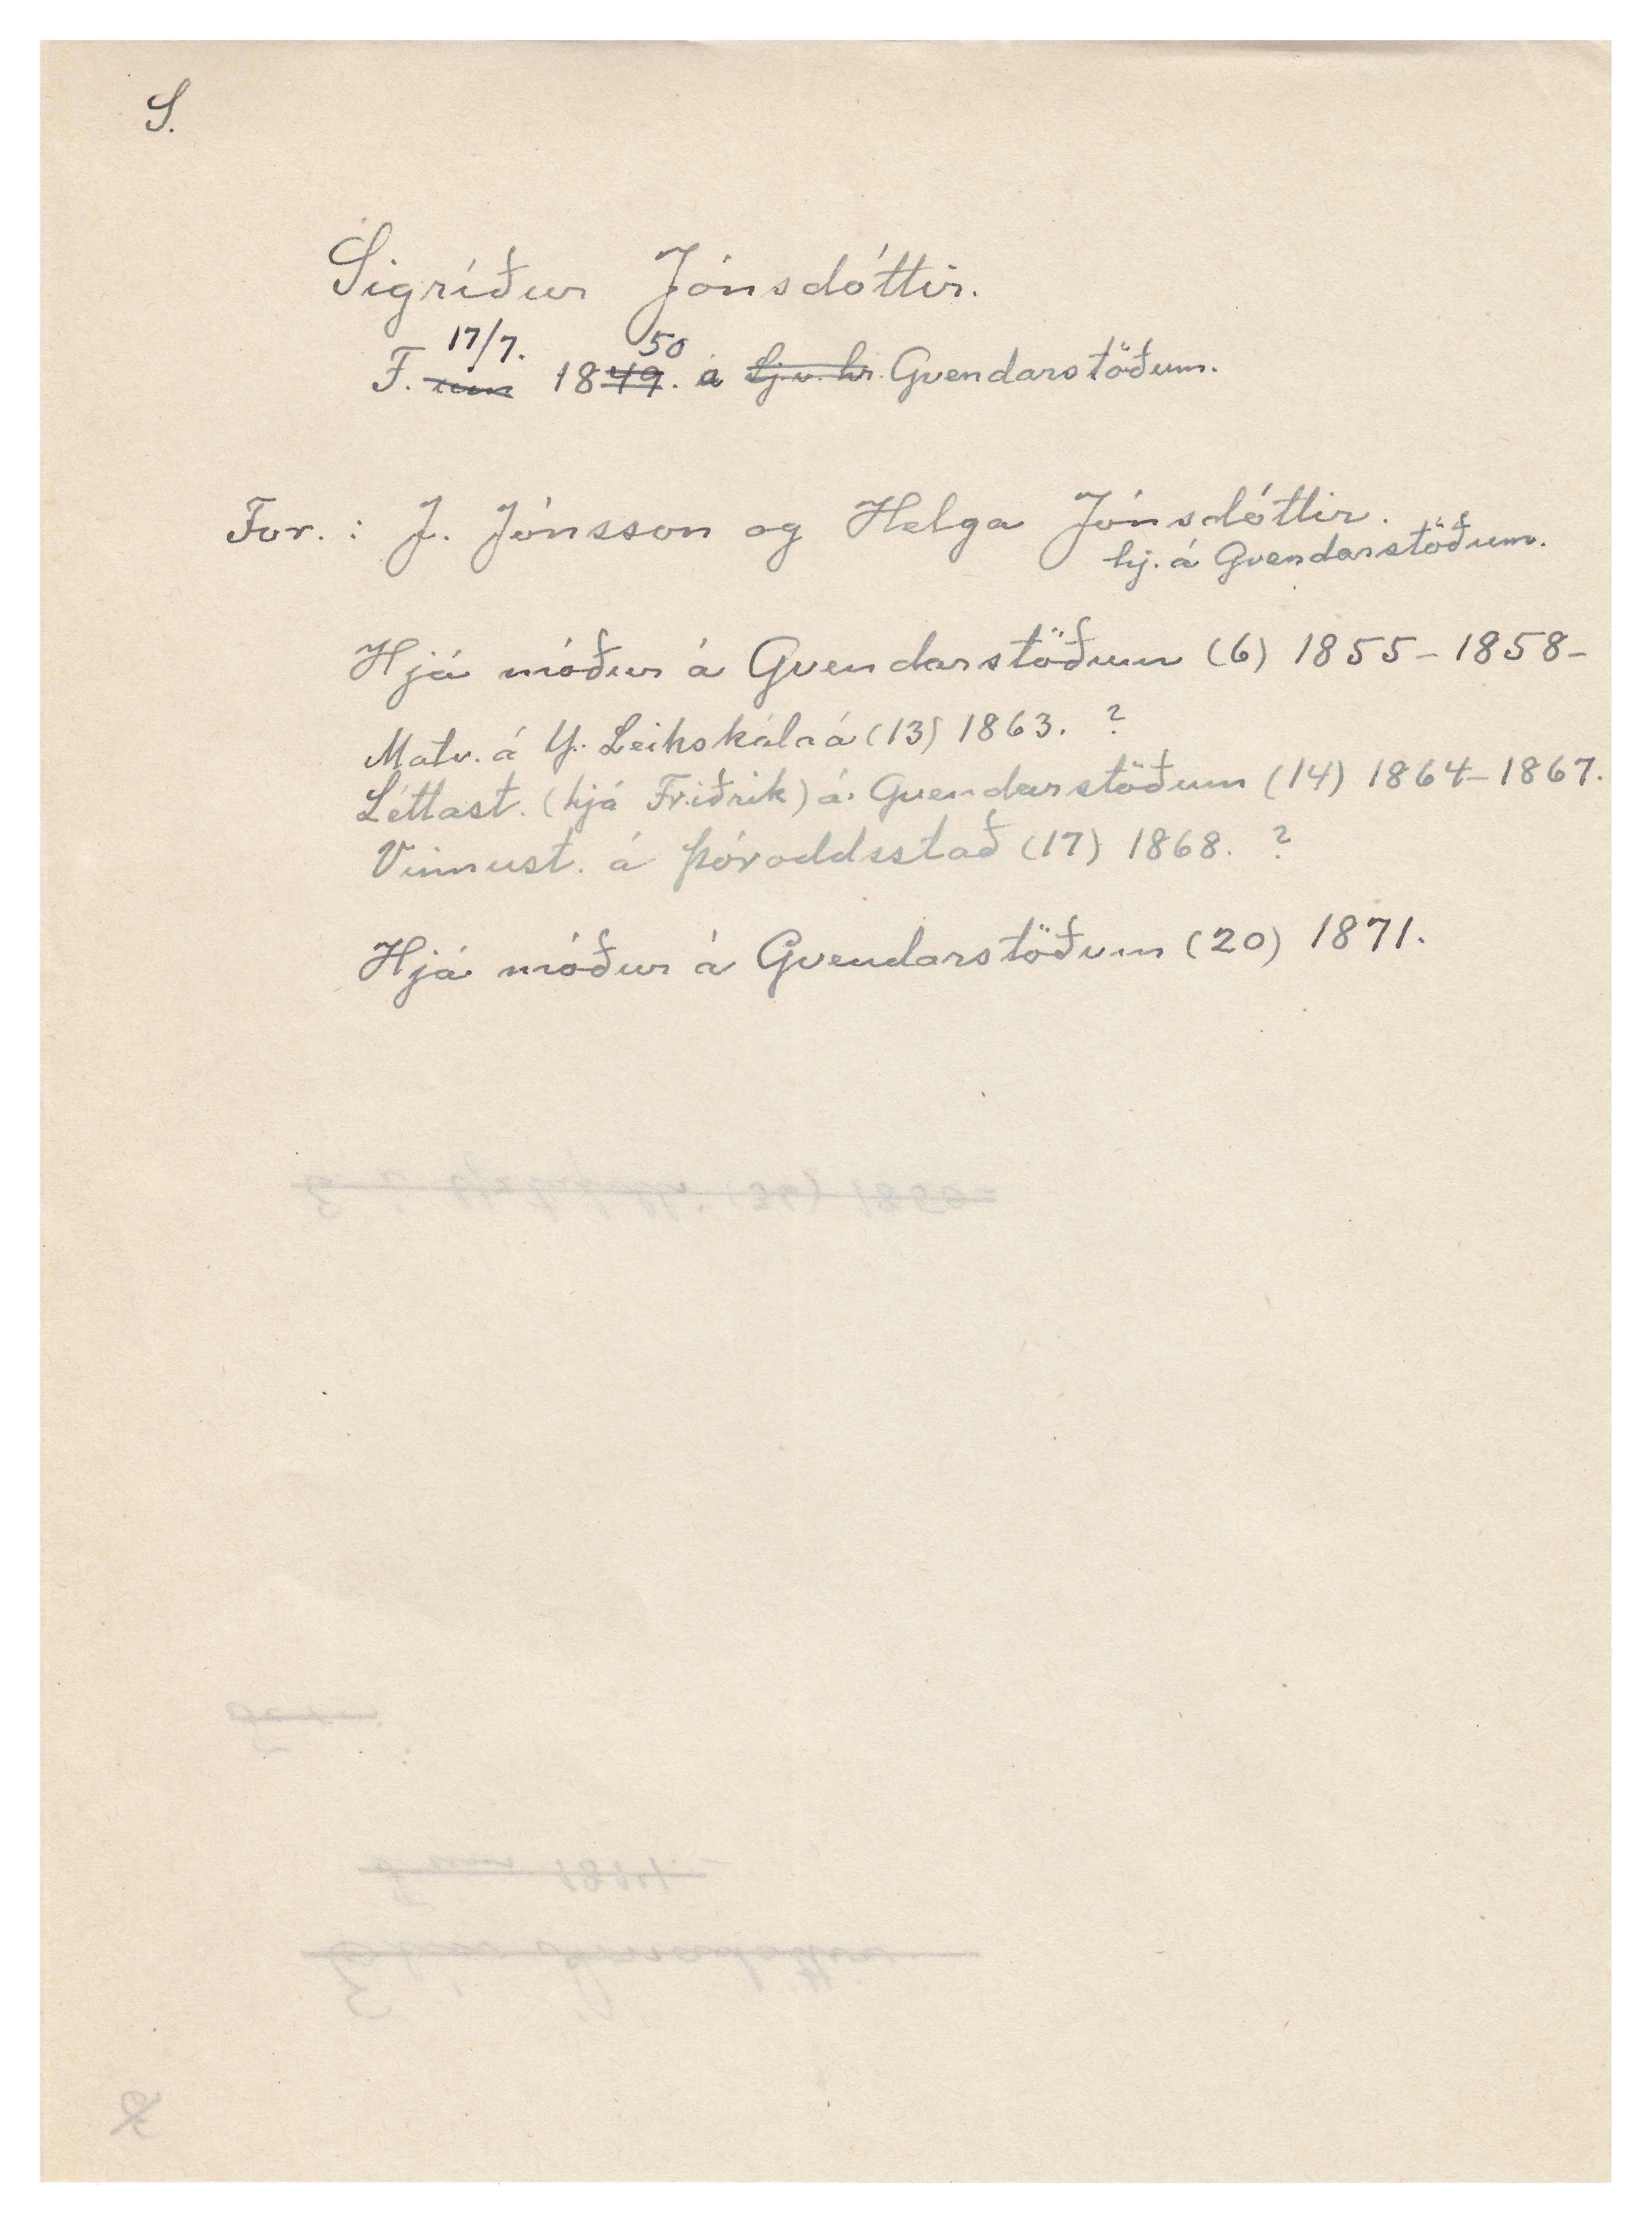 S.
Sigríður Jónsdóttir.
17/7. 50
F. um 1849. á Lj.v.hr. Gvendarstöðum.
For. : J. Jónsson og Helga Jónsdóttir.
hj. á Gvendarstöðum.
Hjá móður á Gvendarstöðum (6) 1855-1858-
Matv. á Y. Leikskálaá (13) 1863. ?
Léttast. (hjá Friðrik) á Gvendarstöðum (14) 1864-1867.
Vinnust. á Þóroddsstað (17) 1868. ?
Hjá móður á Gvendarstöðum (20) 1871.